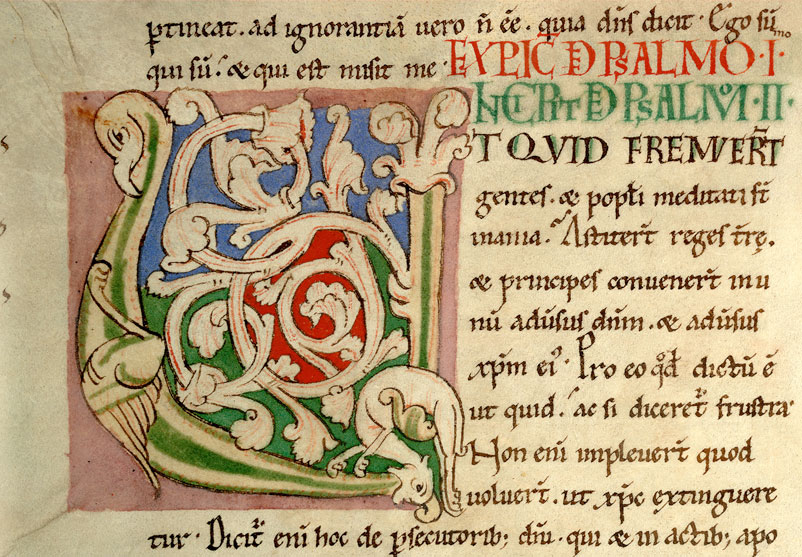 ptineat. ad ignorantiā vero ñ ēē. quia dn̄s dicit. Ego sū
qui sū. & qui est misit me. EXPLIC̄ DE PSALMO. I.
INCIPIT DE PSALMO. II.
UT QUID FREMUER̄T
gentes. & popl̄i meditati st̄
inania. Astiter̄t reges tr̄ę.
& principes convener̄t in u
nū adu̓sus dn̄m. & adu̓sus
xp̄m ei᾽. Pro eo qđ dictū ē
ut quid. ac si diceret᷑ frustra.
Non enī impleuer̄t quod
uoluer̄t. ut xp̄c extinguere
tur. Dicit᷑ enī hoc de ꝑsecutorib; dn̄i. qui & in actib; apo